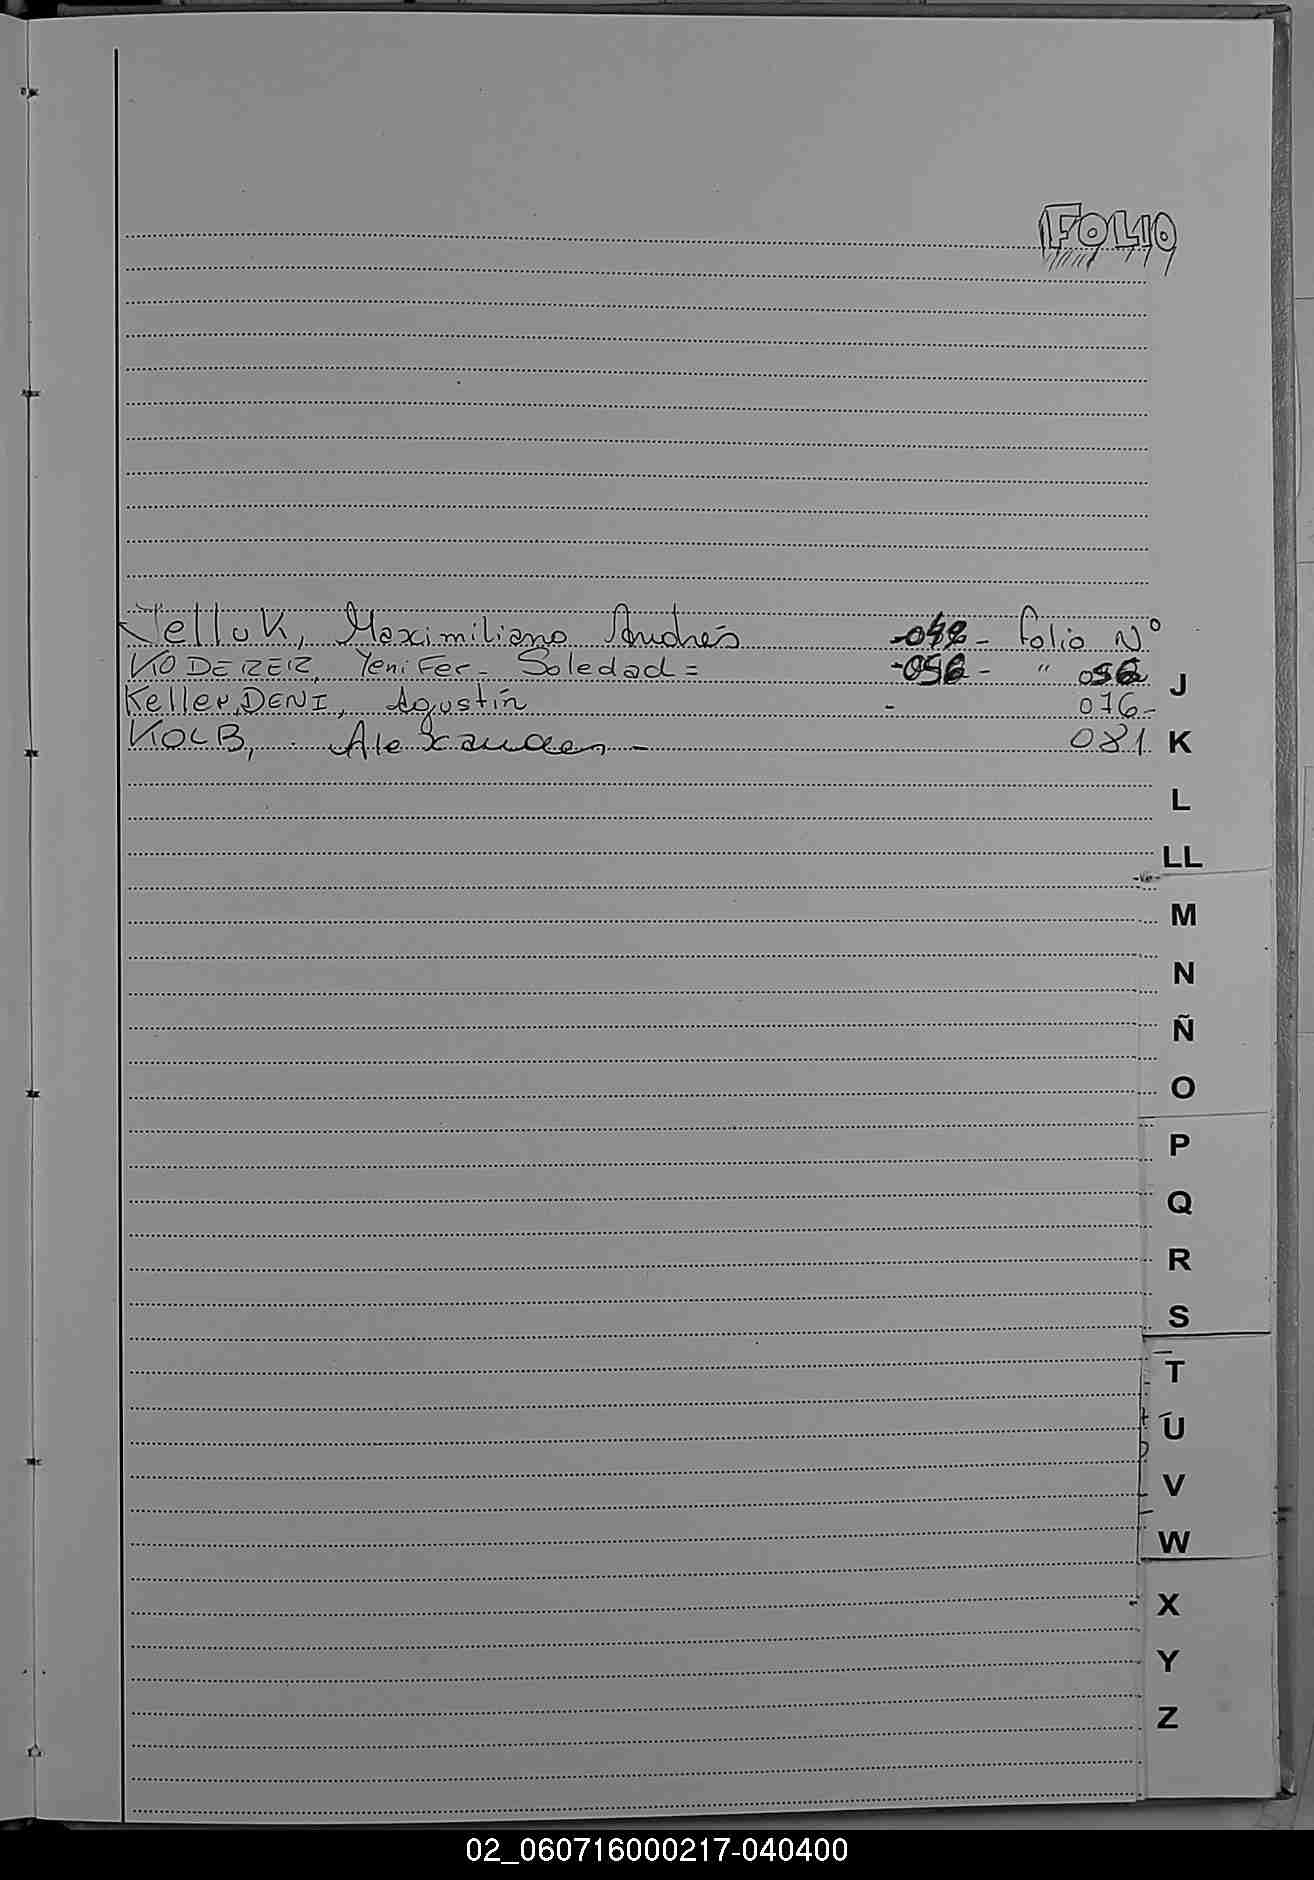 FOLIO
Jelluk, Maximiliano Andrés -048- Folio Nº
KODERER, Yenifer - Soledad = -056- " 056
Keller DENI, Agustín - 076-
KOLB, Alexander - 081
J
K
L
LL
M
N
Ñ
O
P
Q
R
S
T
U
V
W
X
Y
Z
02_060716000217-040400